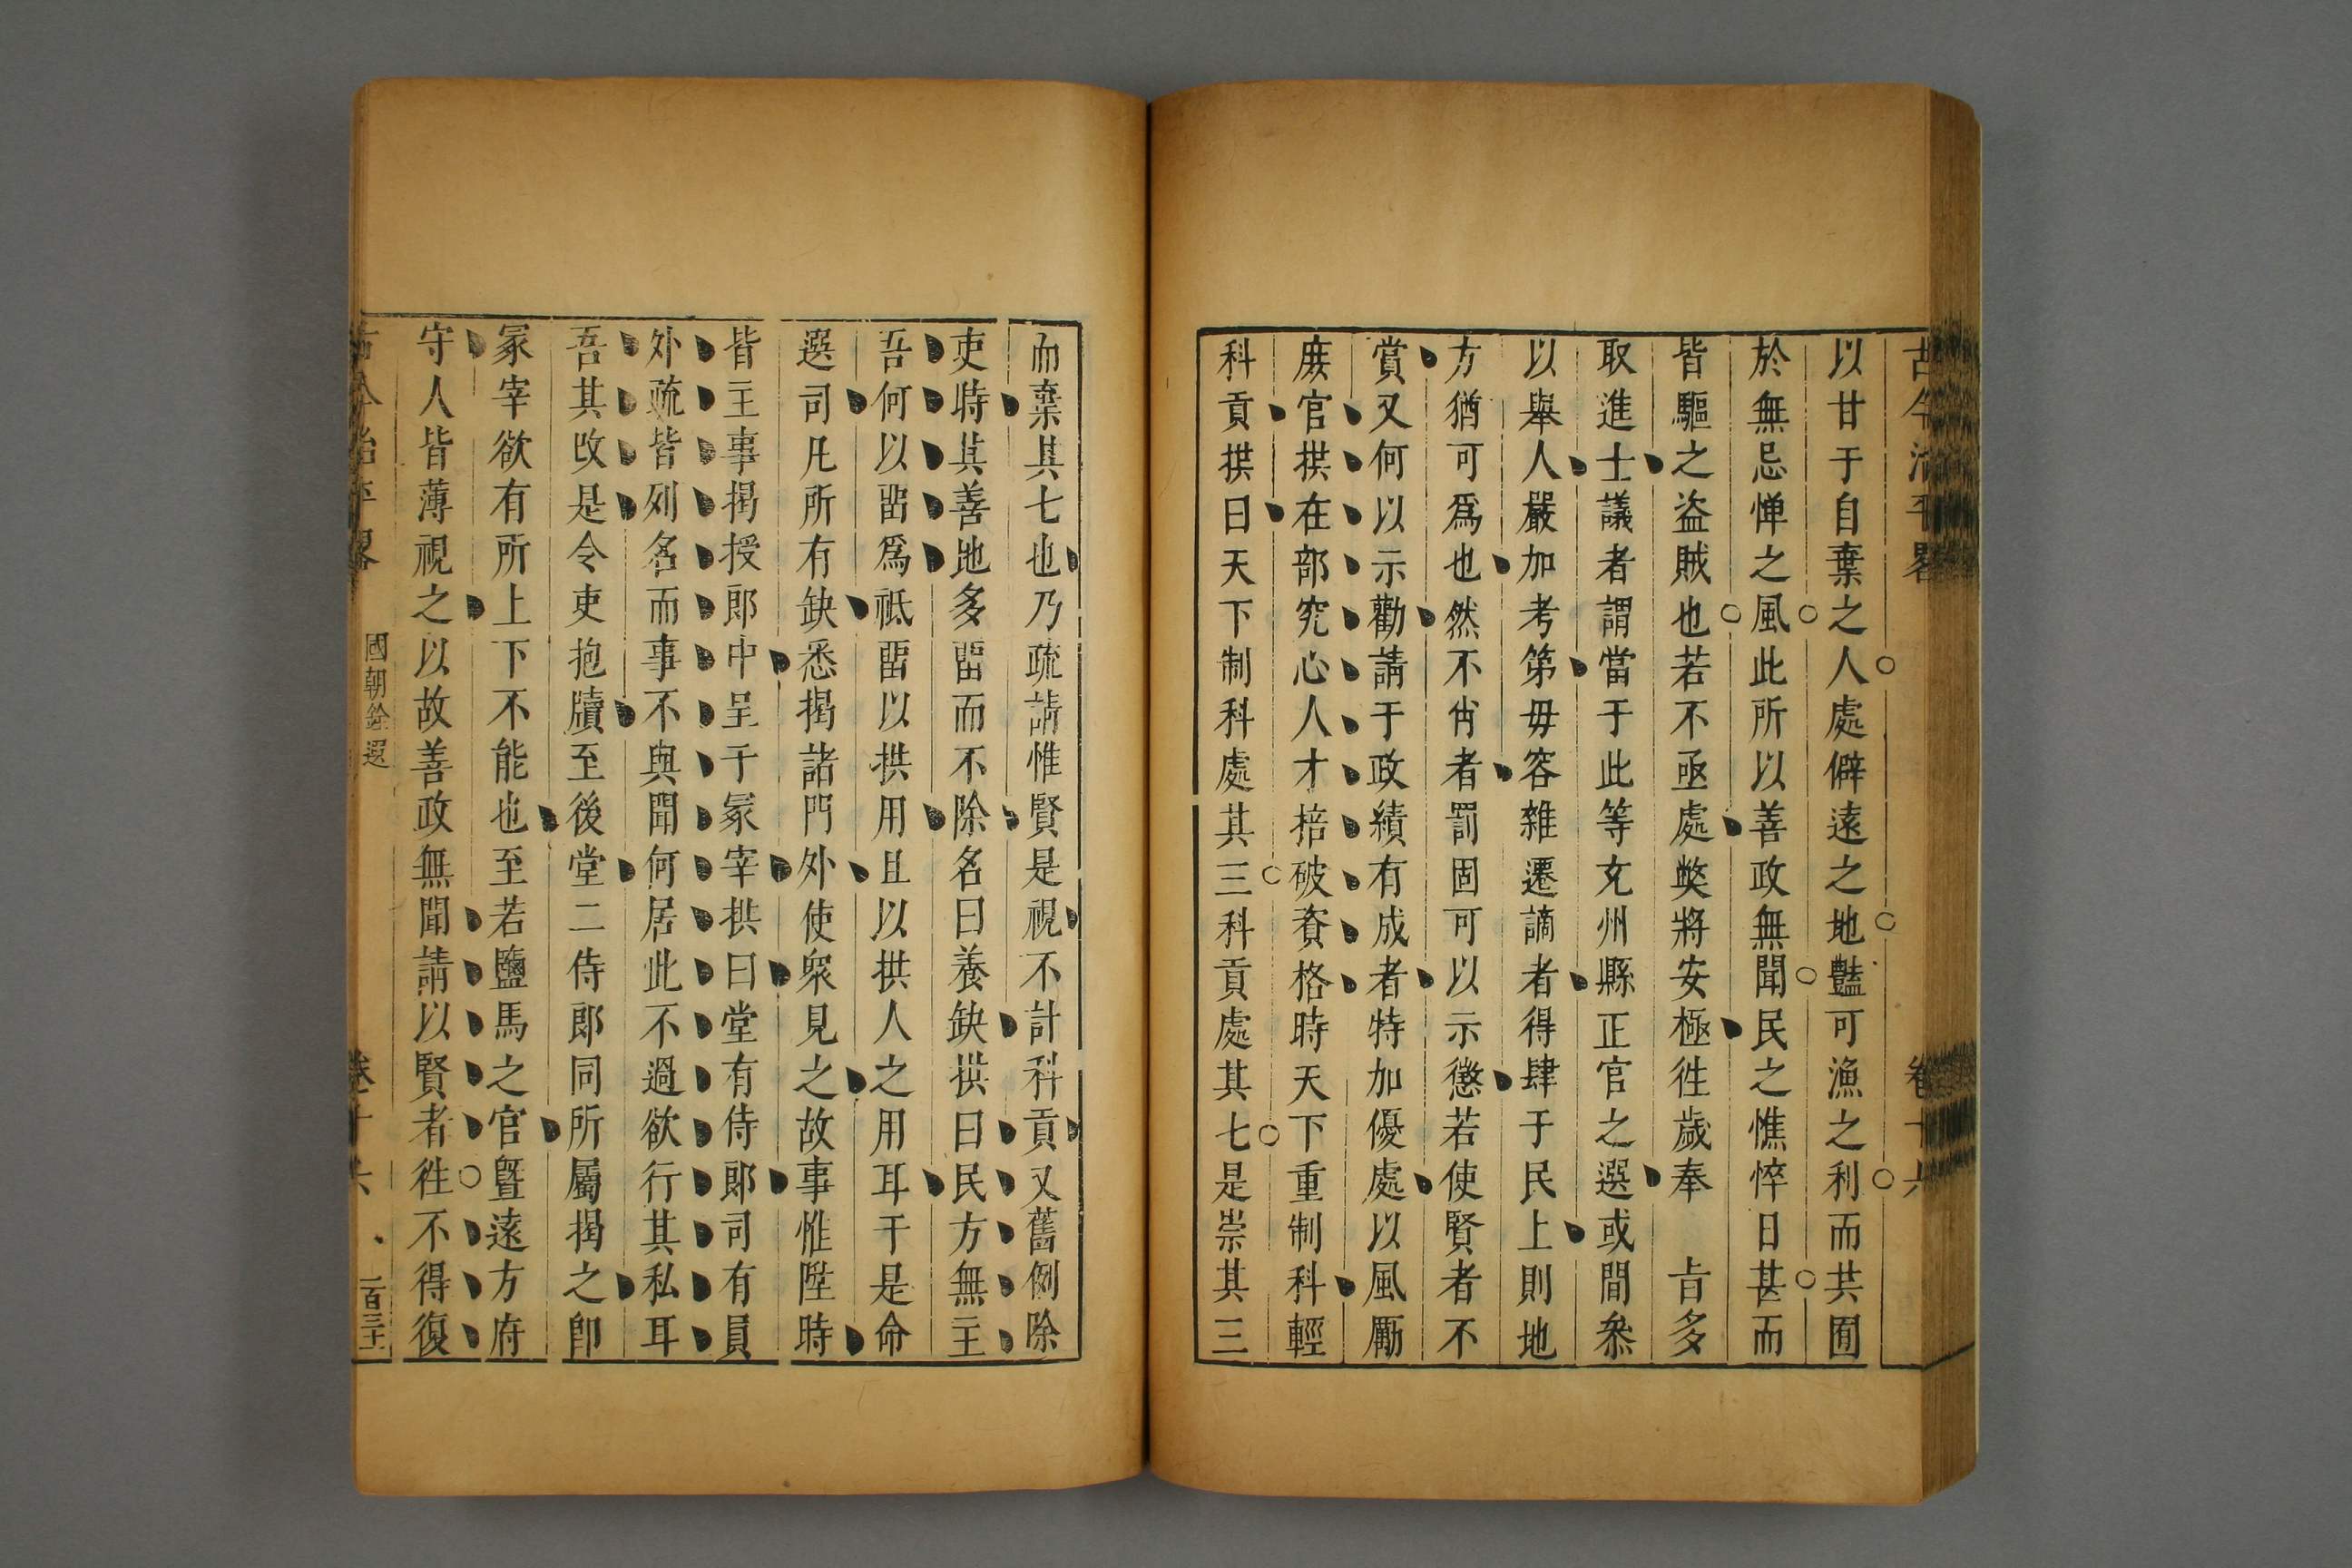 古今治平畧 卷十六
以甘于自棄之人處僻遠之地豔可漁之利而共囿
於無忌惮之風此所以善政無聞民之憔悴日甚而
皆驅之盗賊也若不亟處弊將安極徃歲奉 㫖多
取進士議者謂當于此等充州縣正官之選或間叅
以舉人嚴加考第毋容雜遷謫者得肆于民上則地
方猶可爲也然不肖者罰固可以示懲若使賢者不
賞又何以示勸請于政績有成者特加優處以風勵
庻官拱在部究心人才掊破資格時天下重制科輕
科貢拱曰天下制科處其三科貢處其七是崇其三
而棄其七也乃疏請惟賢是視不計科貢又舊例除
吏時其善地多畱而不除名曰養缺拱曰民方無主
吾何以畱爲祗畱以拱用且以拱人之用耳于是命
選司凡所有缺悉揭諸門外使衆見之故事惟陞時
皆主事揭授郎中呈于冡宰拱曰堂有侍郎司有員
外疏皆列名而事不與聞何居此不過欲行其私耳
吾其改是令吏抱牘至後堂二侍郎同所屬揭之卽
冡宰欲有所上下不能也至若鹽馬之官曁遠方府
守人皆薄視之以故善政無聞請以賢者徃不得復
古今治平畧 國朝銓選 卷十六 一百三十